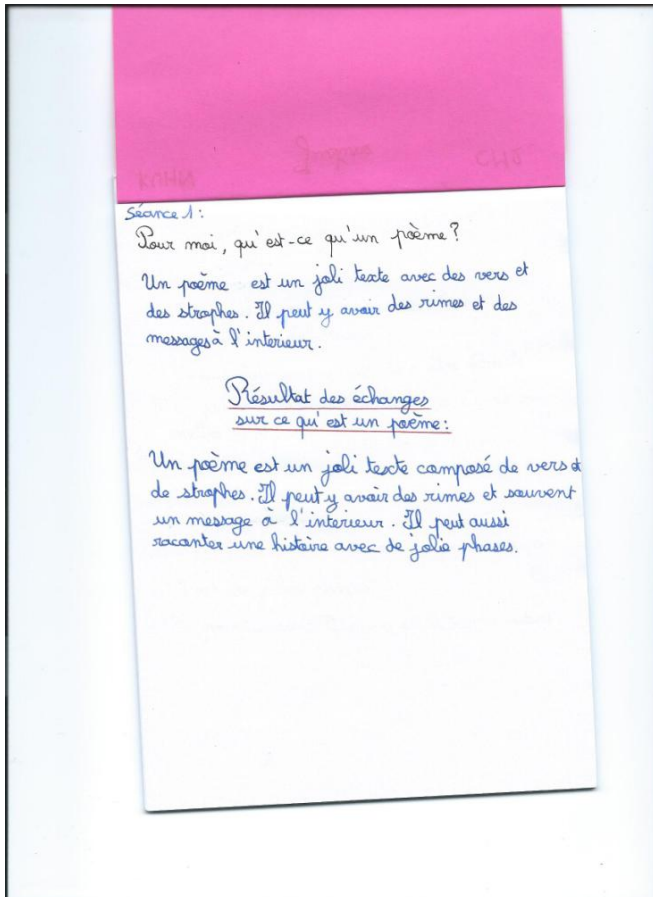 Séance 1 :
Pour moi, qu'est-ce qu'un poème ?
Un poème est un joli texte avec des vers et
des strophes. Il peut y avoir des rimes et des
messages à l'interieur.
Résultat des échanges
sur ce qu'est un poème :
Un poème est un joli texte composé de vers et
de strophes. Il peut y avoir des rimes et souvent
un message à l'interieur. Il peut aussi
raconter une histoire avec de jolie phases.